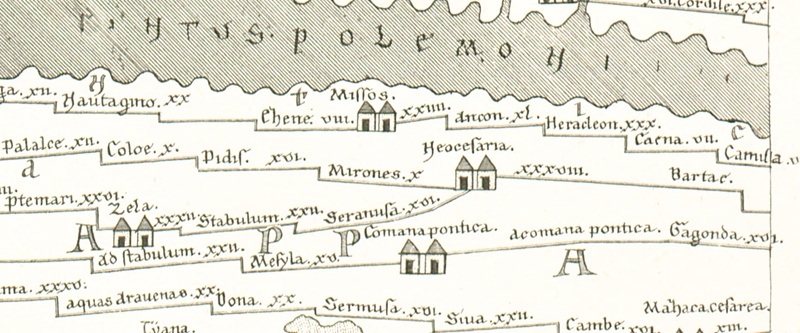 xvi. Cordile. xxx.
PONTVS. POLEMONI
H
ga. xii. Nautagino. xx
Missos.
Chene. viii. xxiiii. Ancon. xl. Heracleon. xxx. Caena. vii. Camila
Palalce. xii. Coloe. x. Pidis. xvi. Mirones. x
Neocesaria. xxxviii. Bartae.
ptemari. xxvi. Zela. xxxii Stabulum. xxii. Seranusa. xvi.
A P P A
Comana pontica. acomana pontica. Gagonda. xvi.
ad stabulum. xxii. Mesyla. xv.
ma. xxxv. aquas dravenas. xx. Dona. xx. Sermusa. xvi. Siva. xxii. Cambe. xvi. xiii.
Mazaca. cesarea.
Tyana.